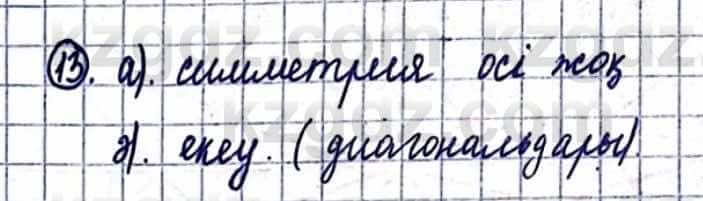 13. а). симметрия осі жоқ
ә). екеу. (диагональдары).